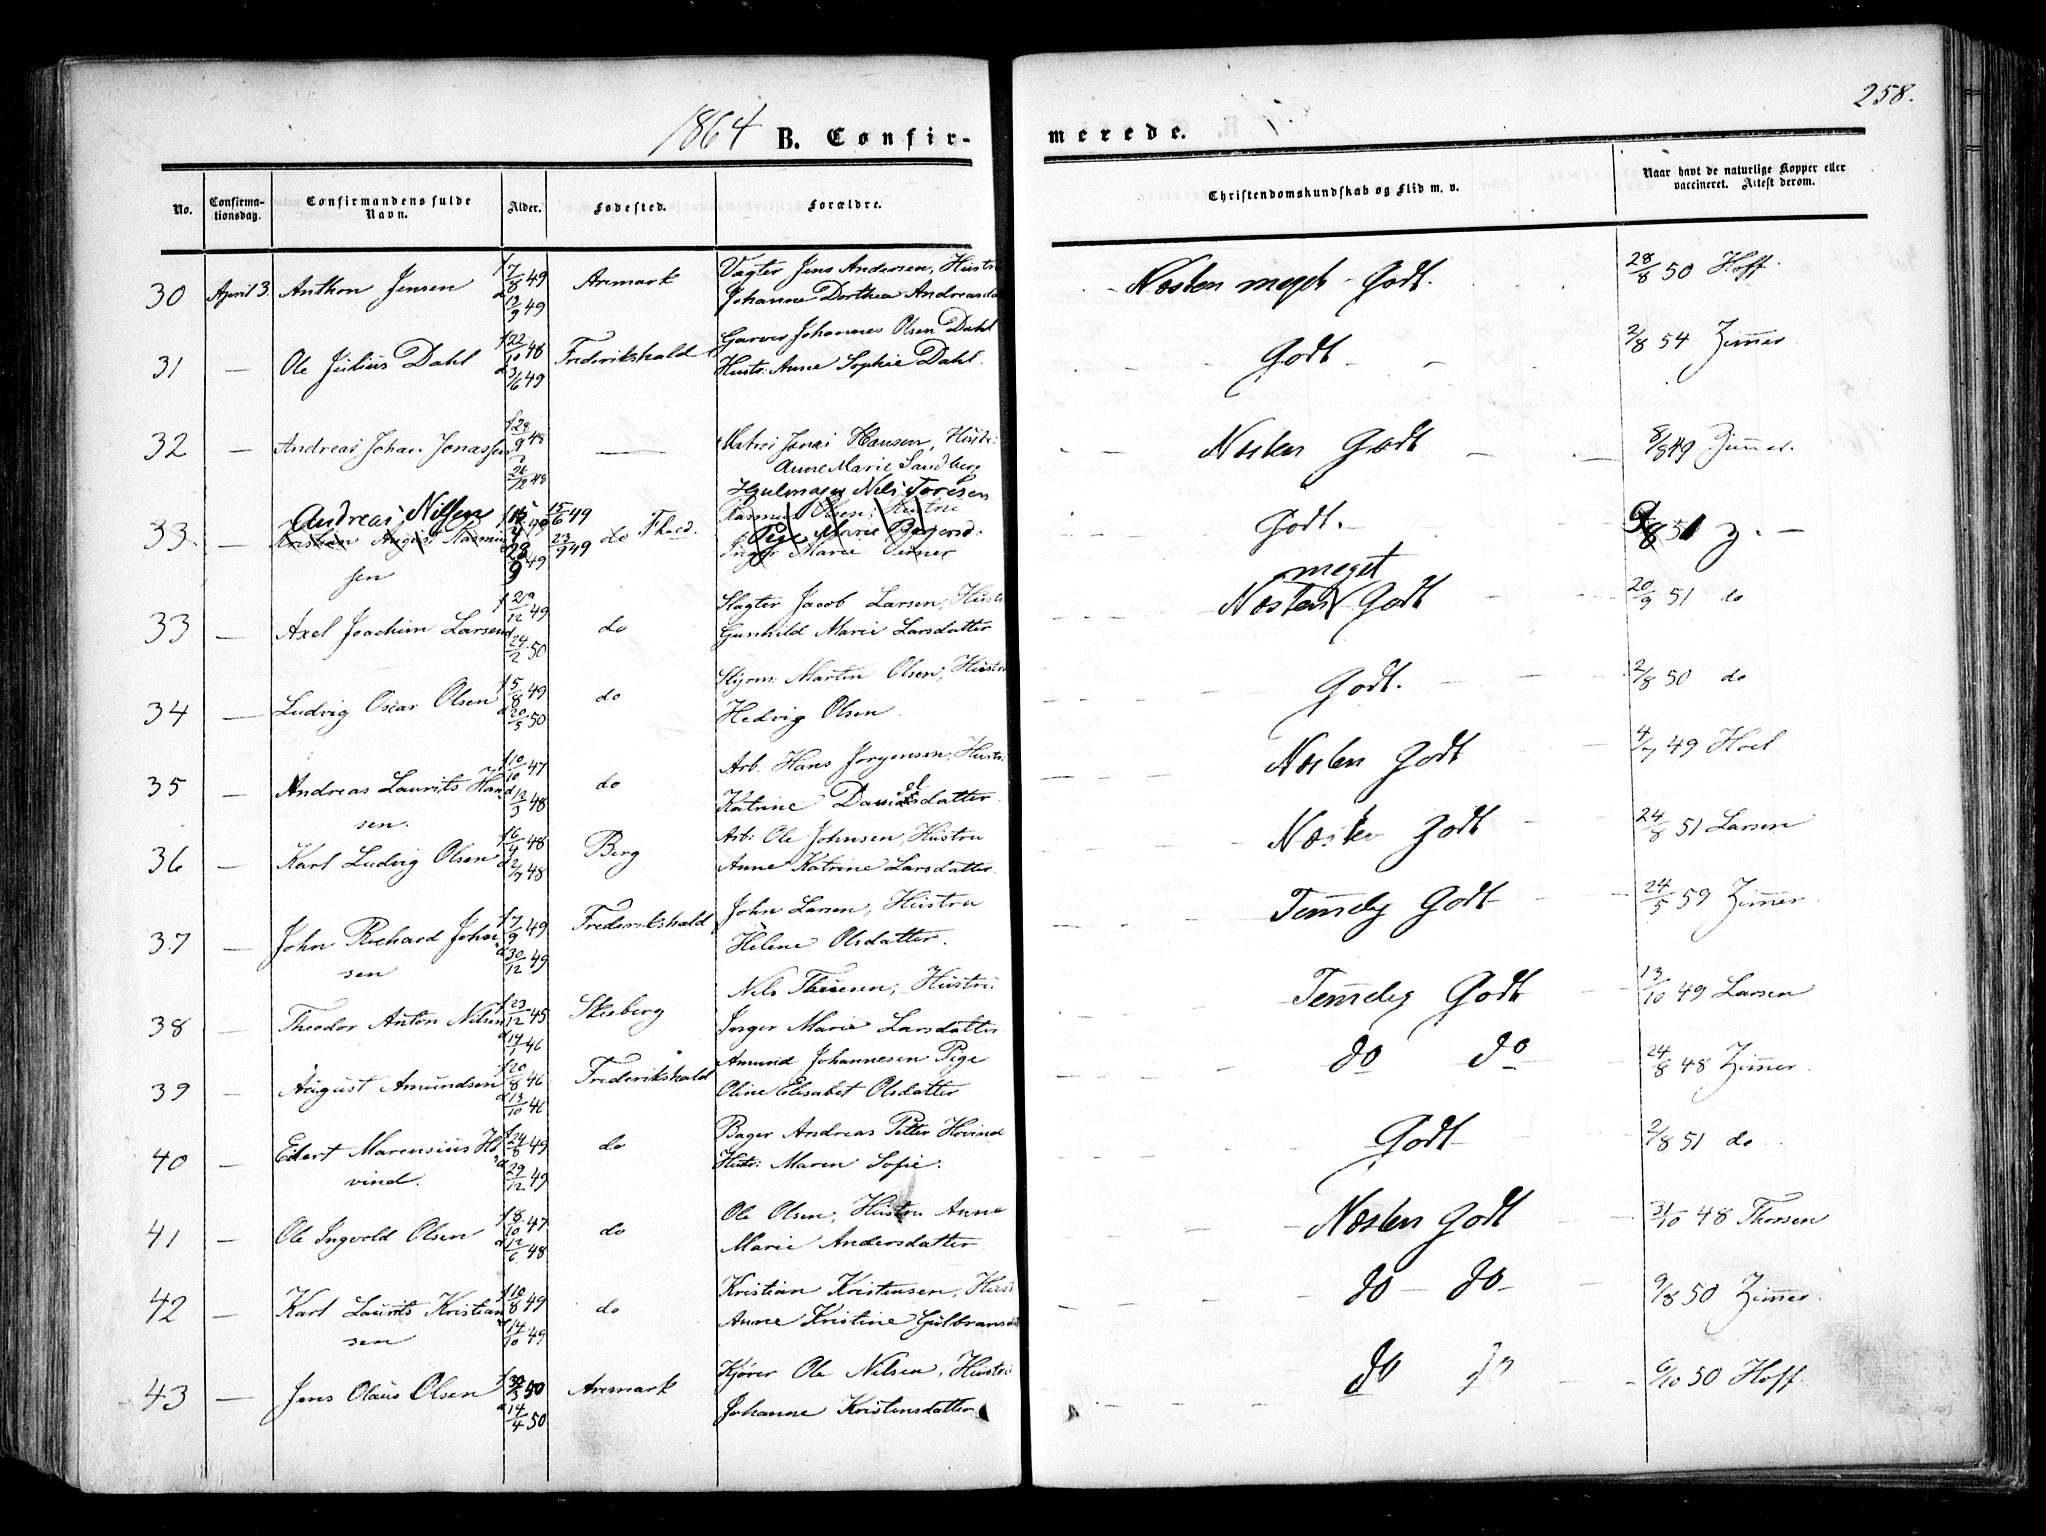 258.
1864 B. Confir- merede.
No. Confirma- tionsdag. Confirmandens fulde Navn. Alder. Fødested. Forældre. Christendomskundskab og Flid m. v. Naar havt de naturlige Kopper eller vaccineret. Attest derom.
30 April 3. Anthon Jensen f 7/8 49 d 13/9 49 Aremark Vagter Jens Andersen, Hustru Johanne Dorthea Andreasd Næsten meget Godt. 28/8 50 Hoff.
31 — Ole Julius Dahl f 22/10 48 d 3/6 49 Frederikshald Garver Johannes Olsen Dahl Hustr: Anne Sophie Dahl. Godt — 2/8 54 Zimmer
32 — Andreas Johan Jonassen 9 48 26/12 48 — Jonas Hansen, Hustr: Anne Marie Sandberg Næsten Godt 8/8 49 Zimmer.
33. Andreas Nilssen 15/6 49 23/9 49 do Fhald. Hjulmager Nils Toresen Pige Marie Godt. 9/8 51 Z. —
Kristian August Rasmus sen Rasmus Olsen, Hustru Inger Marie
33 — Axel Joachim Larsen f 29/12 49 d 24/2 50 do Slagter Jacob Larsen, Hustr Gunhild Marie Larsdatter Næsten meget Godt 20/9 51 do
34 — Ludvig Oscar Olsen f 5/8 49 d 20/5 50 do Styrm: Martin Olsen, Hustru Hedvig Olsen Godt. 2/8 50 do
35 — Andreas Laurits Han sen. f 10/10 47 d 12/3 48 do Arb. Hans Jørgensen, Hustr: Katrine Danielsdatter. Næsten Godt 4/7 49 Hoel
36 — Karl Ludvig Olsen f 6/4 48 d 2/7 48 Berg Arb: Ole Johnsen, Hustru Anne Katrine Larsdatter. Næsten Godt 24/8 51 Larsen
37 — John Richard John sen f 7/9 49 d 30/12 49 Frederikshald John Larsen, Hustru Helene Olsdatter. Temmelig Godt 24/5 59 Zimmer
38 — Theodor Anton Nilsen f 23/12 45 d 14/1 46 Skeberg Nils Hustru: Inger Marie Larsdatter Temmelig Godt 13/10 49 Larsen
39 — August Amundsen f 20/8 46 d 13/10 46 Frederikshald Amund Johannesen Pige Oline Elisabet Olsdatter do do 24/8 48 Zimmer.
40 — Edert Marensius Ho vind. f 24/8 49 d 29/12 49 do Bager Andreas Petter Hovind Hustr: Maren Sofie. Godt 2/8 51 do
41 — Ole Ingvold Olsen f 8/10 47 d 12/6 48 do Ole Olsen, Hustru Anne Marie Andersdatter Næsten Godt 31/10 48 Thorsen
42 — Karl Laurits Kristian sen f 10/8 49 d 14/10 49 do Kristian Kristensen, Hust Anne Kristine Gulbrands do — do 9/8 50 Zimmer
43 — Jens Olaus Olsen 50 d 14/4 50 Aremark Kjører Ole Nilsen, Hustru Johanne Kristensdatter do do 6/10 50 Hoff.